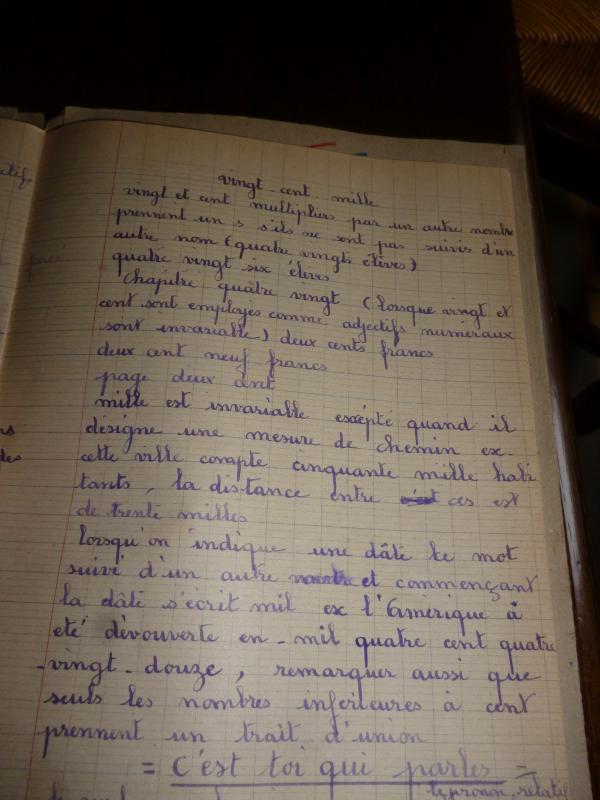 vingt-cent mille
vingt et cent multipliers par un autre nombre
prennent un s s'ils ne sont pas suivis d'un
autre nom (quatre vingts élèves)
quatre vingt six élèves
Chapitre quatre vingt (lorsque vingt et
cent sont employés comme adjectifs numéraux
sont invariable) deux cents francs
deux cent neuf francs
page deux cent
mille est invariable excépté quand il
désigne une mesure de chemin ex-
cette ville compte cinquante mille habi
tants, la distance entre ces est
de trente milles
lorsqu'on indique une dâte le mot
suivi d'un autre et commençant
la dâte s'écrit mil ex l'Amèrique à
eté dévouverte en-mil quatre cent quatre
-vingt-douze, remarquer aussi que
seuls les nombres inferieures à cent
prennent un trait d'union
= C'est toi qui parles =
le pronon relatif